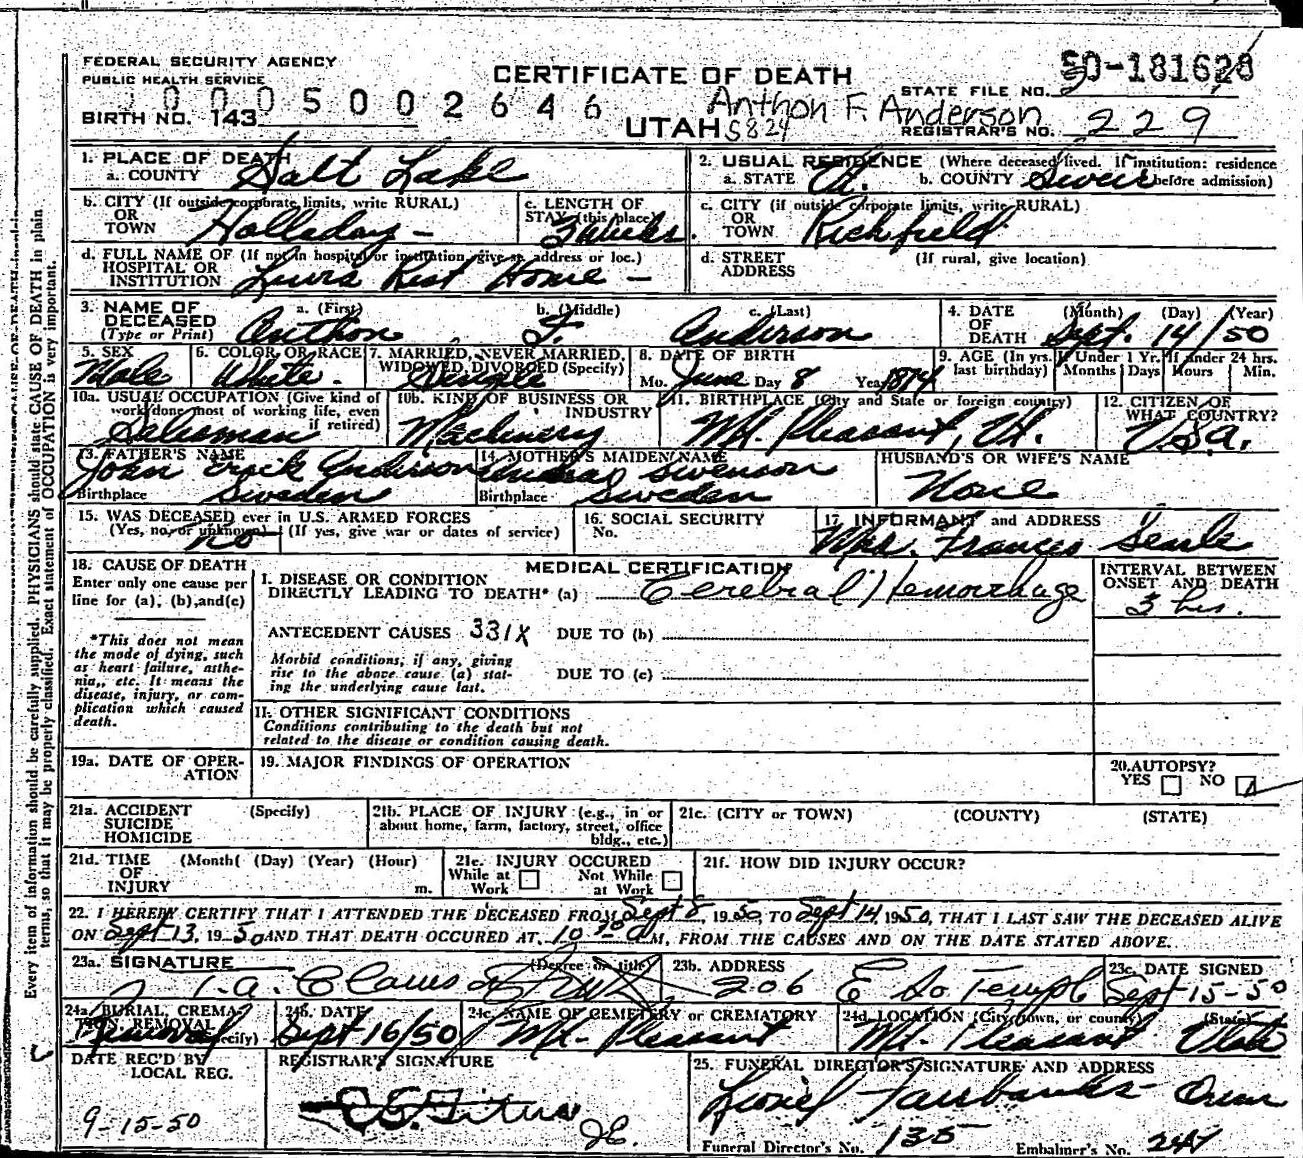 FEDERAL SECURITY AGENCY
PUBLIC HEALTH SERVICE
CERTIFICATE OF DEATH
STATE FILE NO. 50-181628
BIRTH NO. 143
10005002646
Anthon F. Anderson
UTAH 5824
REGISTRAR'S NO. 229
1. PLACE OF DEATH
a. COUNTY Salt Lake
2. USUAL RESIDENCE (Where deceased lived. If institution: residence before admission)
a. STATE Ut. b. COUNTY Sevier
b. CITY (If outside corporate limits, write RURAL) OR TOWN Holladay -
c. LENGTH OF STAY (this place) 3 weeks.
c. CITY (if outside corporate limits, write RURAL) OR TOWN Richfield
d. FULL NAME OF (If not in hospital or institution, give st. address or loc.) HOSPITAL OR INSTITUTION Rest Home -
d. STREET ADDRESS (If rural, give location)
3. NAME OF DECEASED (Type or Print)
a. (First) Anthon b. (Middle) F. c. (Last) Anderson
4. DATE OF DEATH (Month) (Day) (Year) Sept. 14/50
5. SEX Male
6. COLOR OR RACE White -
7. MARRIED, NEVER MARRIED, WIDOWED, DIVORCED (Specify) Single
8. DATE OF BIRTH Mo. June Day 8 Year 1874
9. AGE (In yrs. last birthday) If Under 1 Yr. Months Days If under 24 hrs. Hours Min.
10a. USUAL OCCUPATION (Give kind of work done most of working life, even if retired) Salesman
10b. KIND OF BUSINESS OR INDUSTRY Machinery
11. BIRTHPLACE (City and State or foreign country) Mt. Pleasant, Ut.
12. CITIZEN OF WHAT COUNTRY? U.S.A.
13. FATHER'S NAME John Erick Anderson
Birthplace Sweden
14. MOTHER'S MAIDEN NAME Swenson
Birthplace Sweden
HUSBAND'S OR WIFE'S NAME None
15. WAS DECEASED ever in U.S. ARMED FORCES (Yes, no, or unknown) No (If yes, give war or dates of service)
16. SOCIAL SECURITY No.
17. INFORMANT and ADDRESS Mrs. Frances Searle
18. CAUSE OF DEATH
Enter only one cause per line for (a), (b), and (c)
*This does not mean the mode of dying, such as heart failure, asthenia, etc. It means the disease, injury, or complication which caused death.
MEDICAL CERTIFICATION
I. DISEASE OR CONDITION DIRECTLY LEADING TO DEATH* (a) Cerebral Hemorrhage
INTERVAL BETWEEN ONSET AND DEATH
3 hrs.
ANTECEDENT CAUSES 331X DUE TO (b)
Morbid conditions, if any, giving rise to the above cause (a) stating the underlying cause last.
DUE TO (c)
II. OTHER SIGNIFICANT CONDITIONS
Conditions contributing to the death but not related to the disease or condition causing death.
19a. DATE OF OPERATION
19. MAJOR FINDINGS OF OPERATION
20. AUTOPSY? YES NO
21a. ACCIDENT SUICIDE HOMICIDE (Specify)
21b. PLACE OF INJURY (e.g., in or about home, farm, factory, street, office bldg., etc.)
21c. (CITY or TOWN) (COUNTY) (STATE)
21d. TIME OF INJURY (Month( (Day) (Year) (Hour) m.
21e. INJURY OCCURED While at Work Not While at Work
21f. HOW DID INJURY OCCUR?
22. I HEREBY CERTIFY THAT I ATTENDED THE DECEASED FROM Sept 8, 1950, TO Sept 14, 1950, THAT I LAST SAW THE DECEASED ALIVE
ON Sept 13, 1950 AND THAT DEATH OCCURED AT 10 AM, FROM THE CAUSES AND ON THE DATE STATED ABOVE.
23a. SIGNATURE (Degree or title) T. A. Clawson Jr
23b. ADDRESS 206 E So Templ
23c. DATE SIGNED Sept 15-50
24a. BURIAL, CREMATION, REMOVAL (Specify) Removal
24b. DATE Sept 16/50
24c. NAME OF CEMETERY or CREMATORY Mt. Pleasant
24d. LOCATION (City, town, or county) (State) Mt. Pleasant Utah
DATE REC'D BY LOCAL REG. 9-15-50
REGISTRAR'S SIGNATURE
25. FUNERAL DIRECTOR'S SIGNATURE AND ADDRESS Lionel Fairbanks Orem
Funeral Director's No. 135 Embalmer's No. 247
Every item of information should be carefully supplied. PHYSICIANS should state CAUSE OF DEATH in plain
terms, so that it may be properly classified. Exact statement of OCCUPATION is very important.